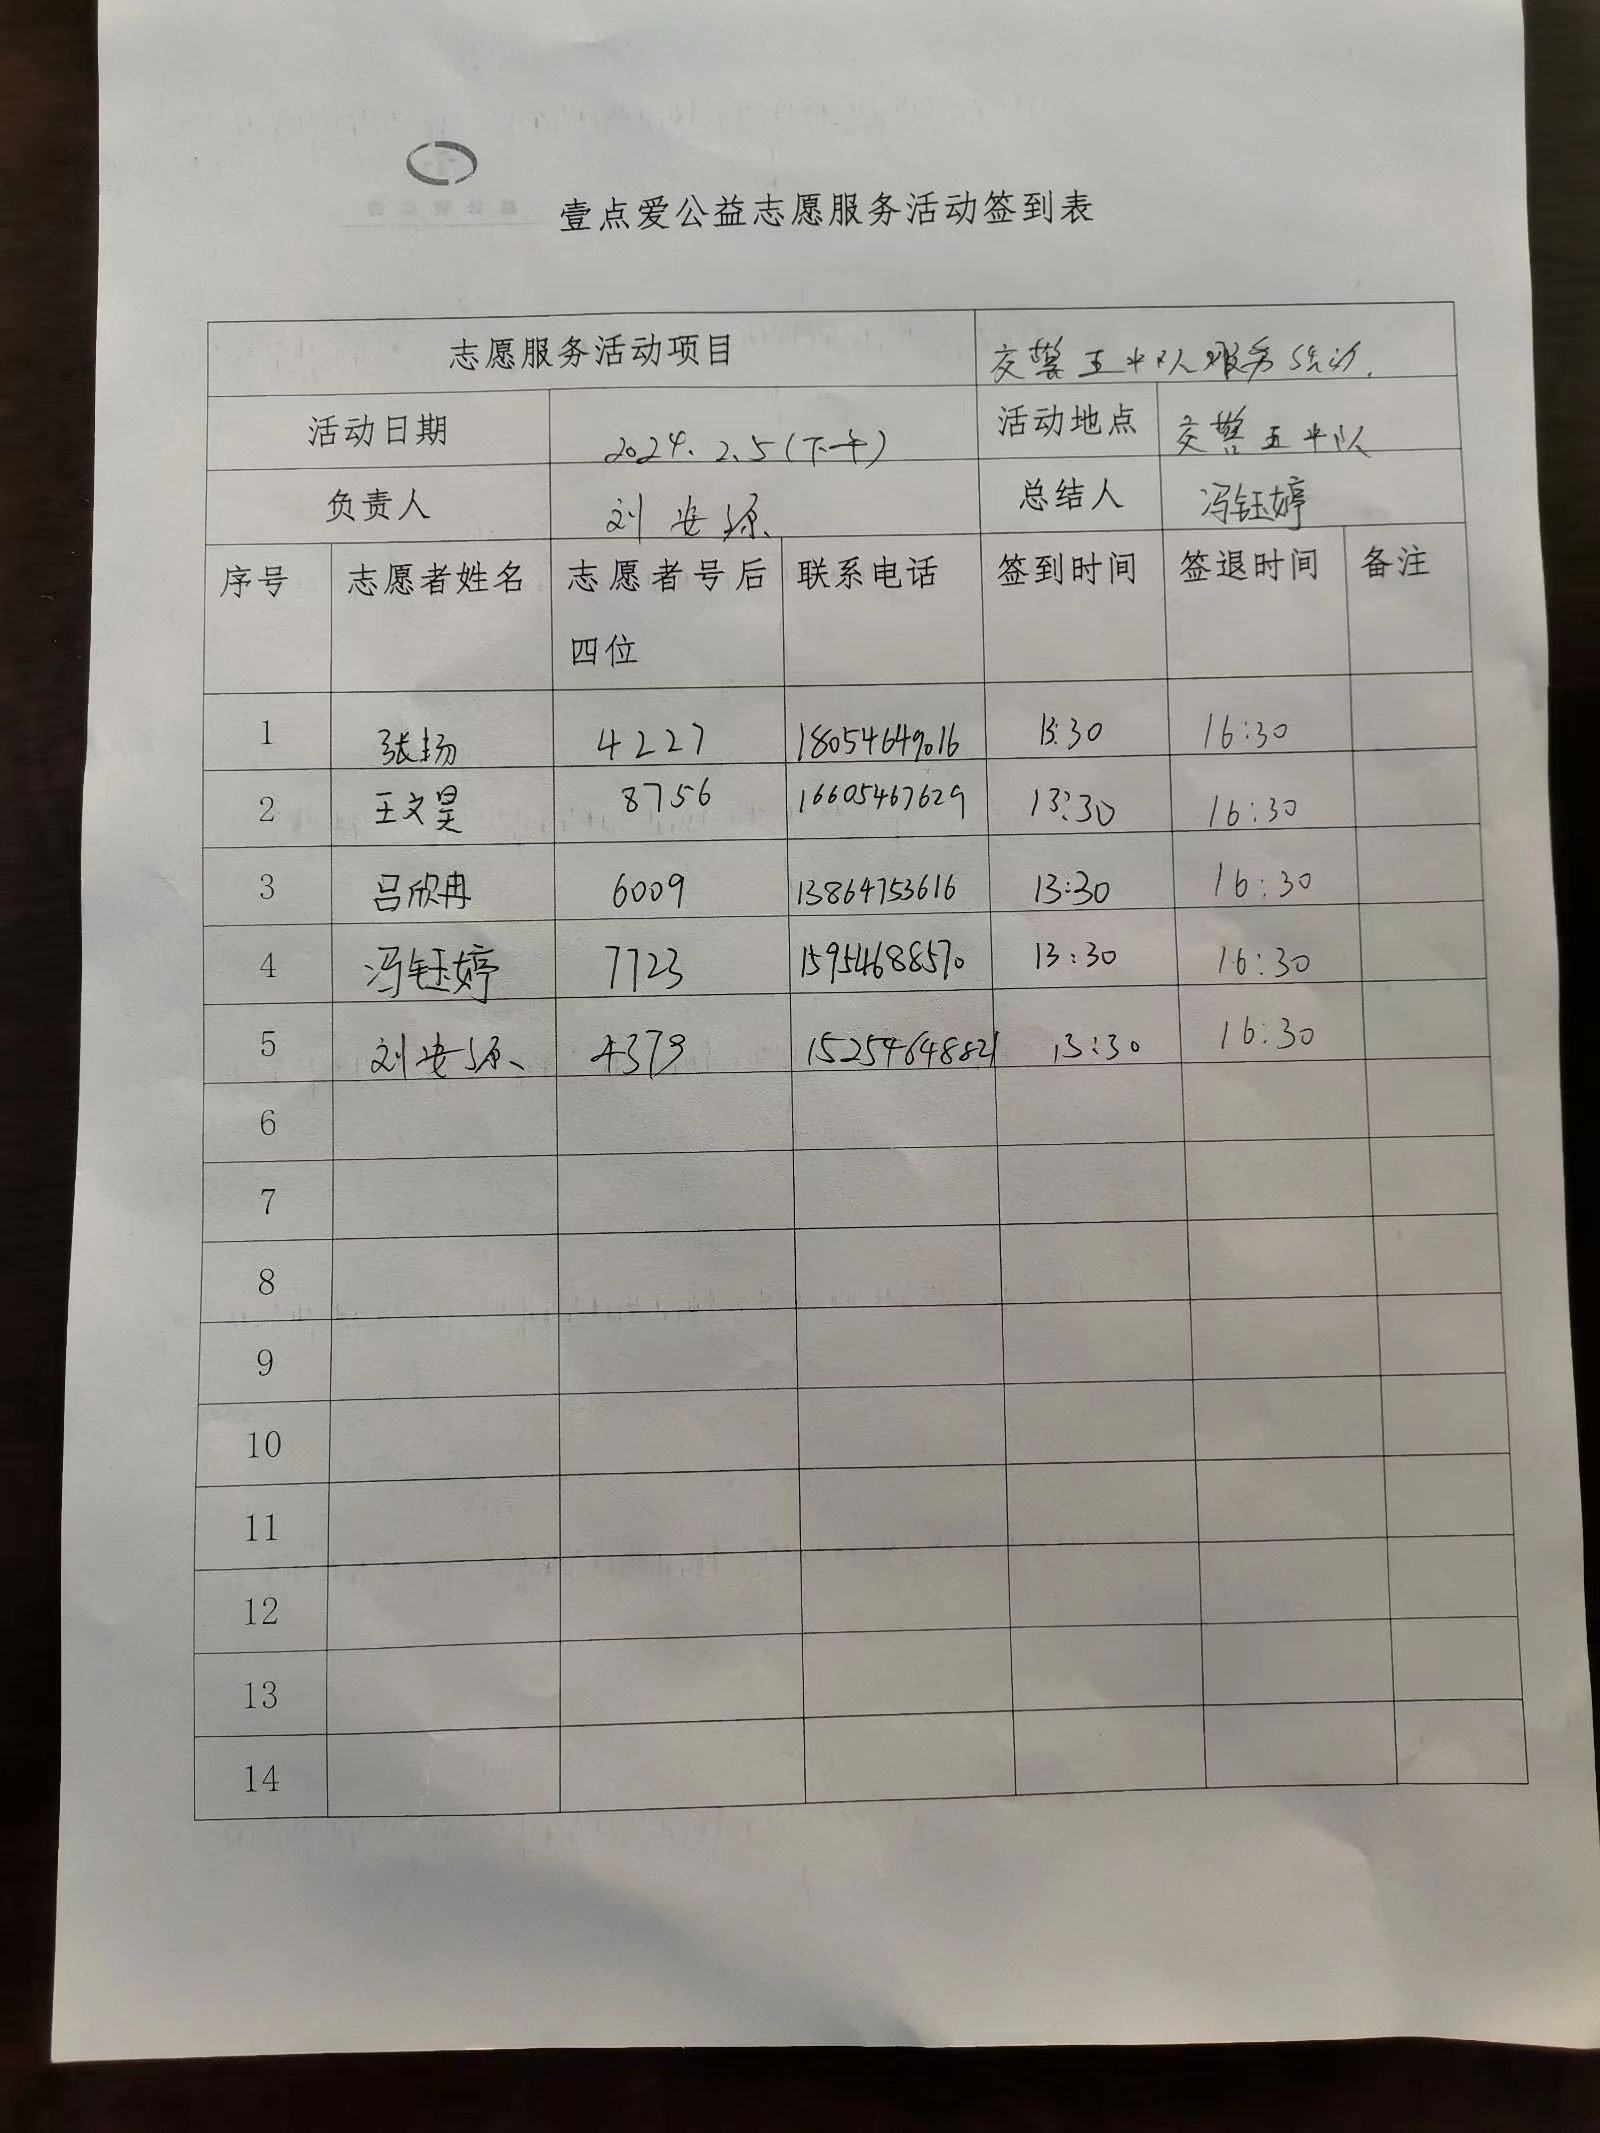 壹点爱公益志愿服务活动签到表
志愿服务活动项目 交警五中队服务活动.
活动日期 2024.2.5(下午) 活动地点 交警五中队
负责人 刘安源 总结人 冯钰婷
序号 志愿者姓名 志愿者号后四位 联系电话 签到时间 签退时间 备注
1 张扬 4227 18054649016 13:30 16:30
2 王文昊 8756 16605467629 13:30 16:30
3 吕欣冉 6009 13864753616 13:30 16:30
4 冯钰婷 7723 15954688570 13:30 16:30
5 刘安源 4379 15254648821 13:30 16:30
6
7
8
9
10
11
12
13
14